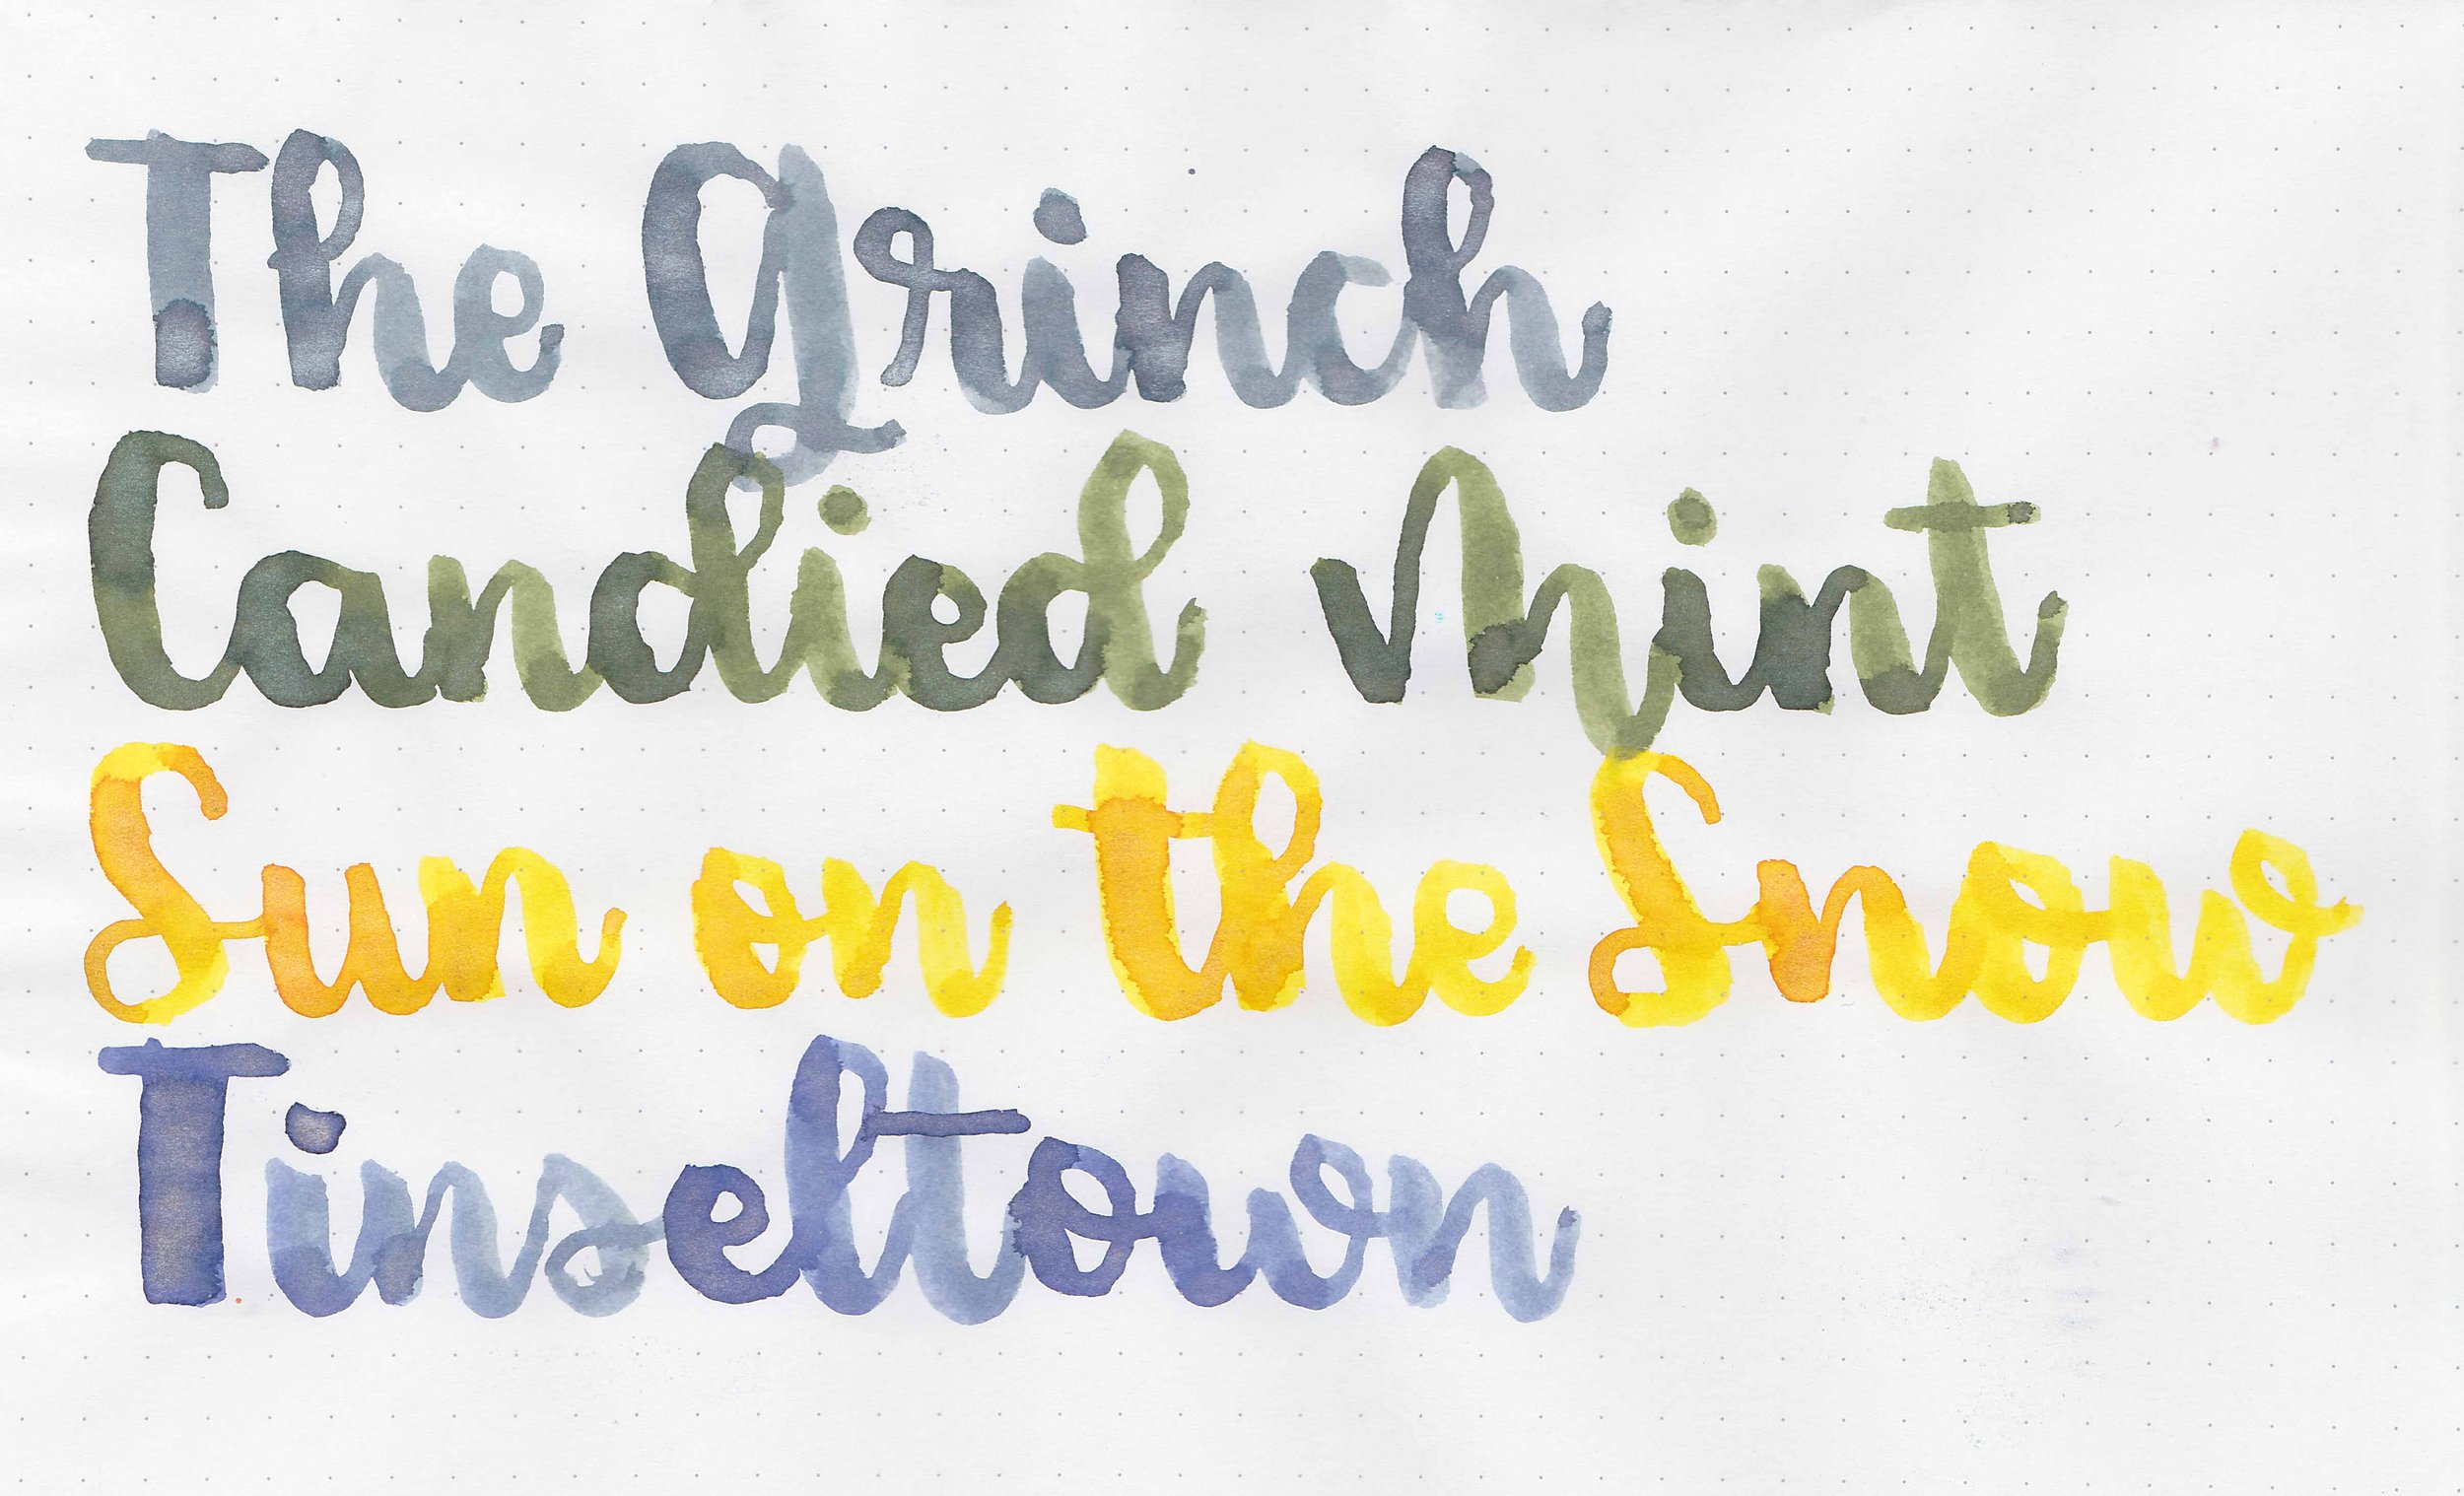 The Grinch
Candied Mint
Sun on the Snow
Tinseltown